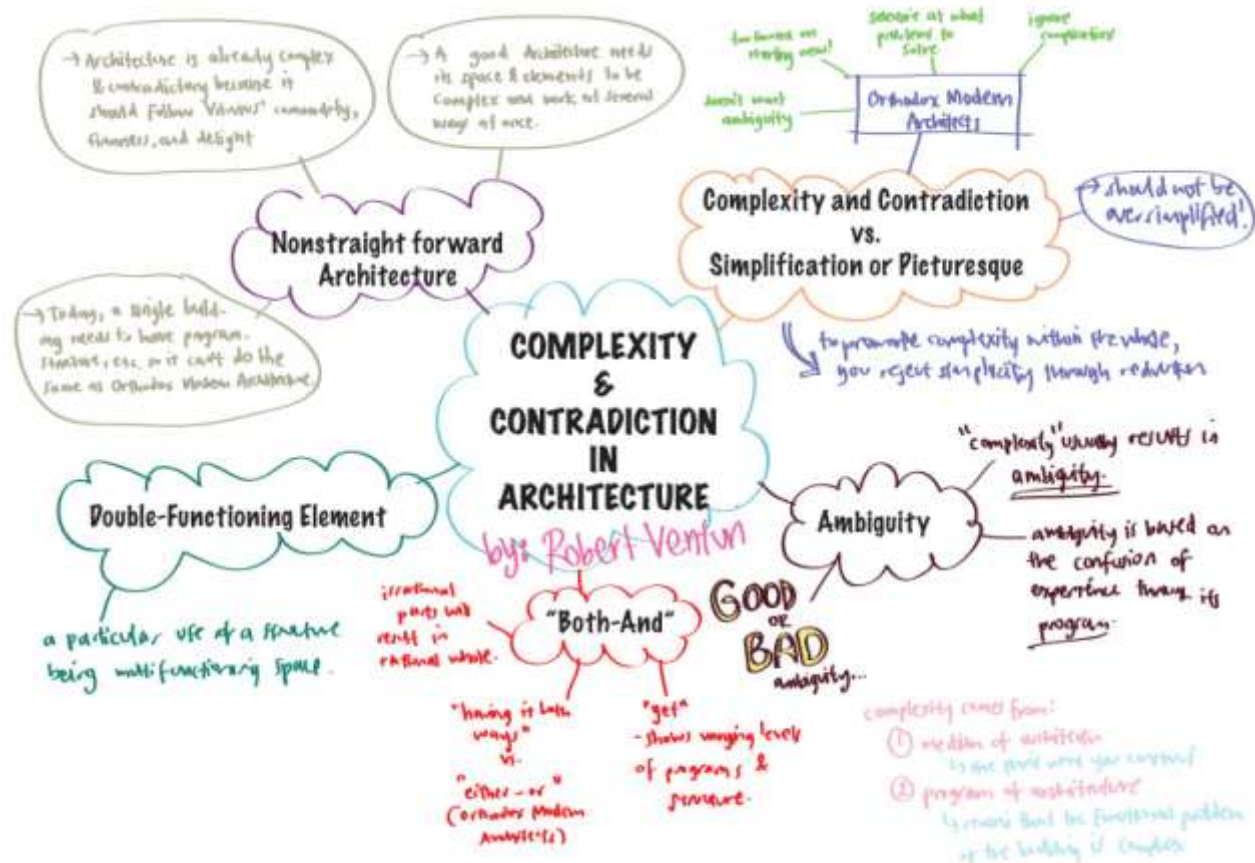 → Architecture is already complex
& contradictory because it
should follow Vitruvius' commodity,
firmness, and delight
→ A good Architecture needs
its space & elements to be
complex and work at several
ways at once.
Nonstraight forward
Architecture
→ Today, a single build-
ing needs to have program,
structure, etc. so it can't do the
same as Orthodox Modern Architecture.
too focused on
starting new!
selective at what
problems to
solve
ignore
complications
doesn't want
ambiguity
Orthodox Modern
Architects
Complexity and Contradiction
vs.
Simplification or Picturesque
→ should not be
oversimplified!
to promote complexity within the whole,
you reject simplicity through reduction
COMPLEXITY
&
CONTRADICTION
IN
ARCHITECTURE
by: Robert Venturi
Double-Functioning Element
a particular use of a structure
being multifunctioning space.
"Both-And"
irrational
parts will
result in
rational whole.
"having it both
ways"
vs.
"either-or"
(orthodox Modern
Architects)
"yet"
- shows varying levels
of programs &
structure.
Ambiguity
"complexity" usually results in
ambiguity.
ambiguity is based on
the confusion of
experience through its
program.
GOOD
or
BAD
ambiguity...
complexity comes from:
① medium of architecture
② program of architecture
↳ means that the functional problem
of the building is complex